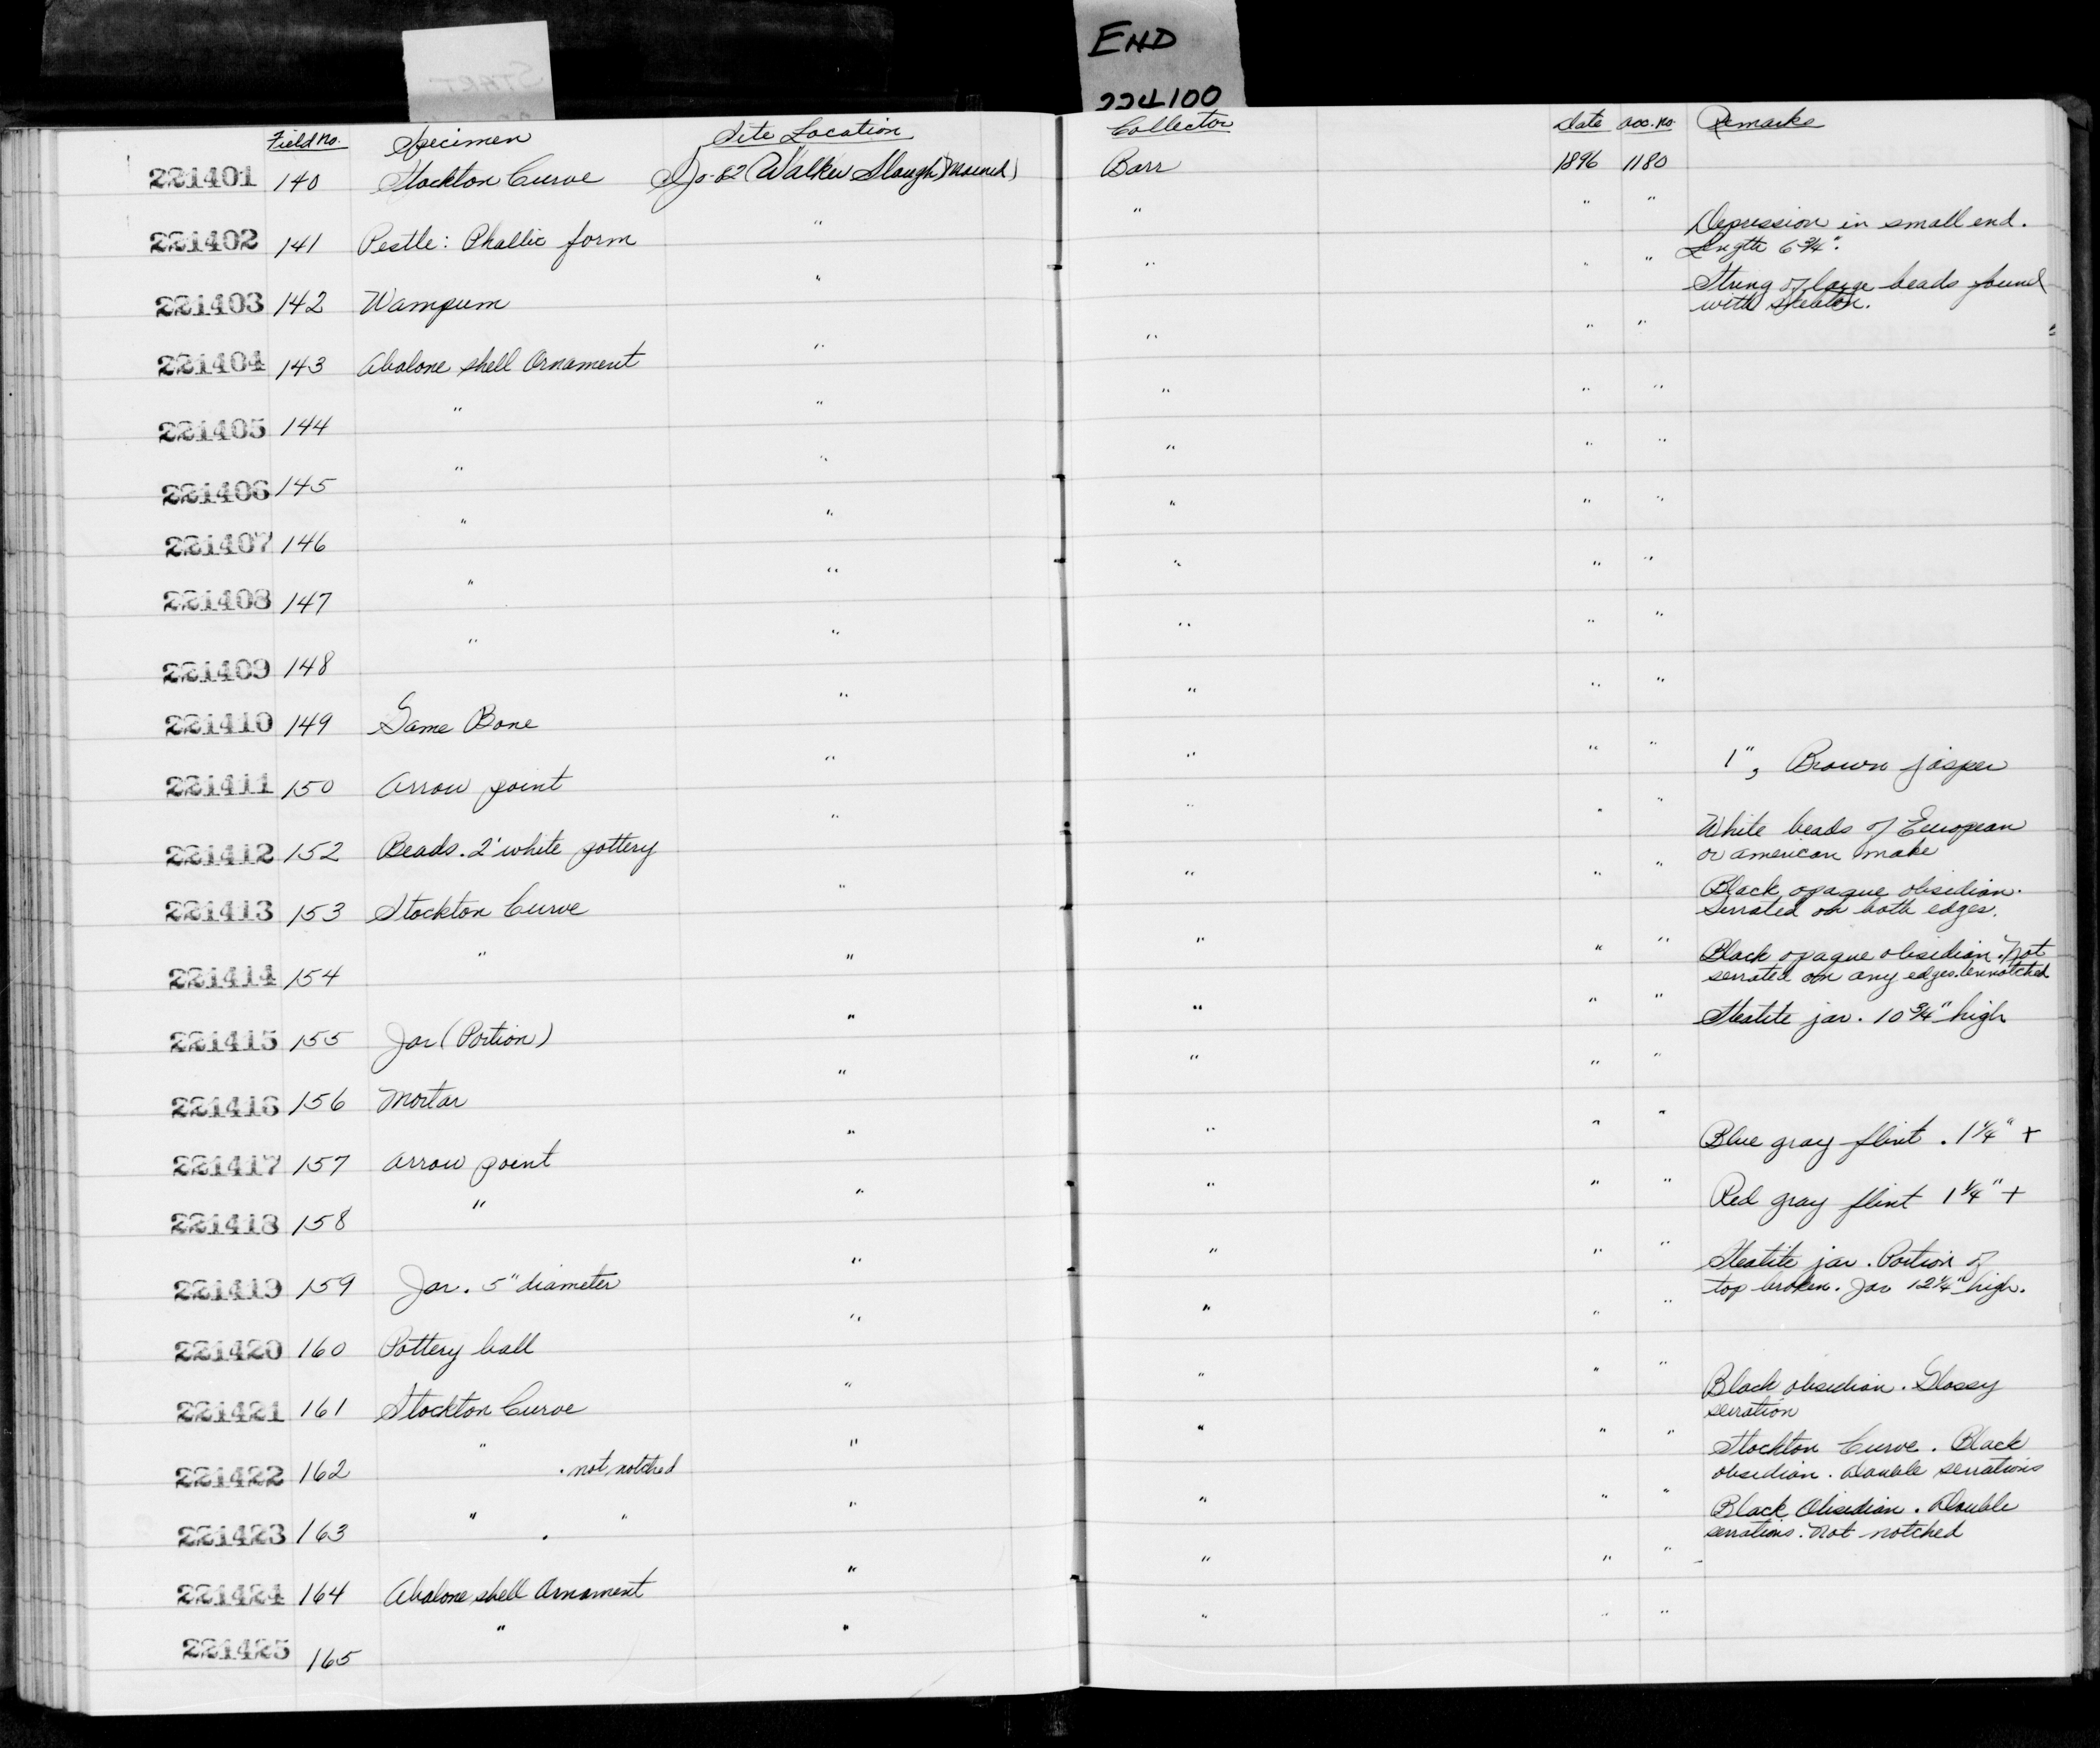 END
224100
START
Field No. Specimen Site Location Collector Date Acc. No. Remarks
221401 140 Stockton Curve SJo-82 (Walker Slough Mound) Barr 1896 1180
221402 141 Pestle: Phallic form " " " " Depression in small end.
Length 6 3/4".
221403 142 Wampum " " " " String of large beads found
with skeleton.
221404 143 Abalone shell Ornament " " " "
221405 144 " " " " "
221406 145 " " " " "
221407 146 " " " " "
221408 147 " " " " "
221409 148 " " " " "
221410 149 Game Bone " " " "
221411 150 Arrow point " " " " 1", Brown jasper
221412 152 Beads. 2 white pottery " " " " White beads of European
or american make
221413 153 Stockton Curve " " " " Black opaque obsidian.
Serrated on both edges.
221414 154 " " " " " Black opaque obsidian. Not
serrated on any edges. Unnotched
221415 155 Jar (Portion) " " " " Steatite jar. 10 3/4" high
221416 156 Mortar " " " "
221417 157 Arrow point " " " " Blue gray flint. 1 1/4" +
221418 158 " " " " " Red gray flint 1 1/4" +
221419 159 Jar. 5" diameter " " " " Steatite jar. Portion of
top broken. Jar 12 1/4" high.
221420 160 Pottery ball " " " "
221421 161 Stockton Curve " " " " Black obsidian. Glossy
serration
221422 162 " . not notched " " " " Stockton Curve. Black
obsidian. Double serrations
221423 163 " . " " " " " Black Obsidian. Double
serrations. Not notched
221424 164 Abalone shell Ornament " " " "
221425 165 " " " " "